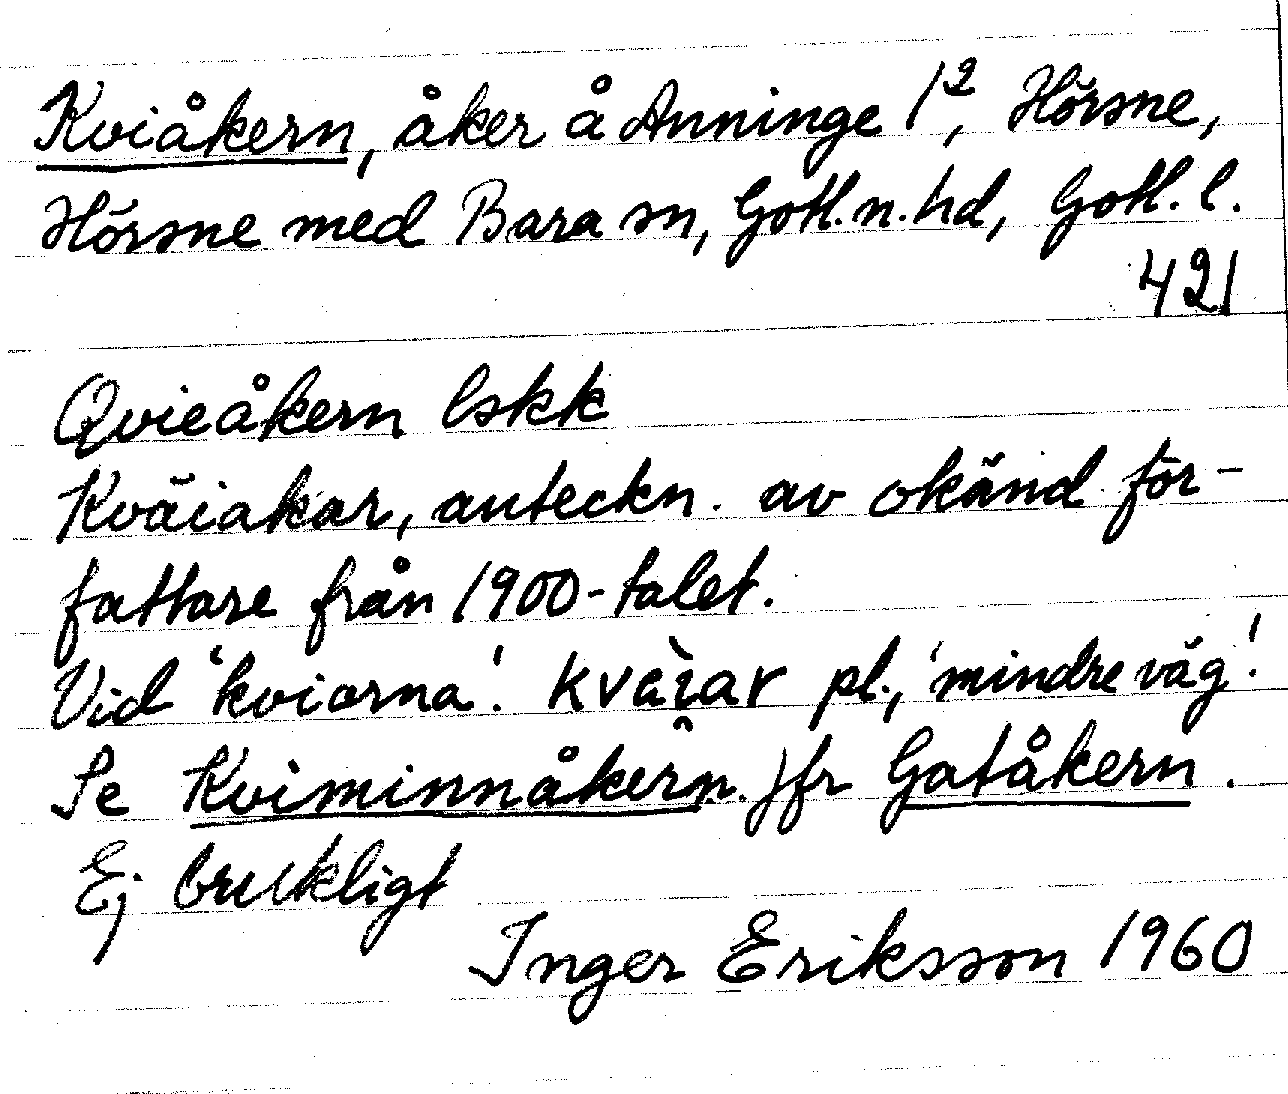 Kviåkern, åker å Anninge 1², Hörsne,
Hörsne med Bara sn, Gotl. n. hd, Gotl. l.
421
Qvieåkern lskk
Kväiakar, anteckn. av okänd för-
fattare från 1900-talet.
Vid 'kviorna'. pl., 'mindre väg'.
Se Kviminnåkern. Jfr Gatåkern.
Ej brukligt
Inger Eriksson 1960